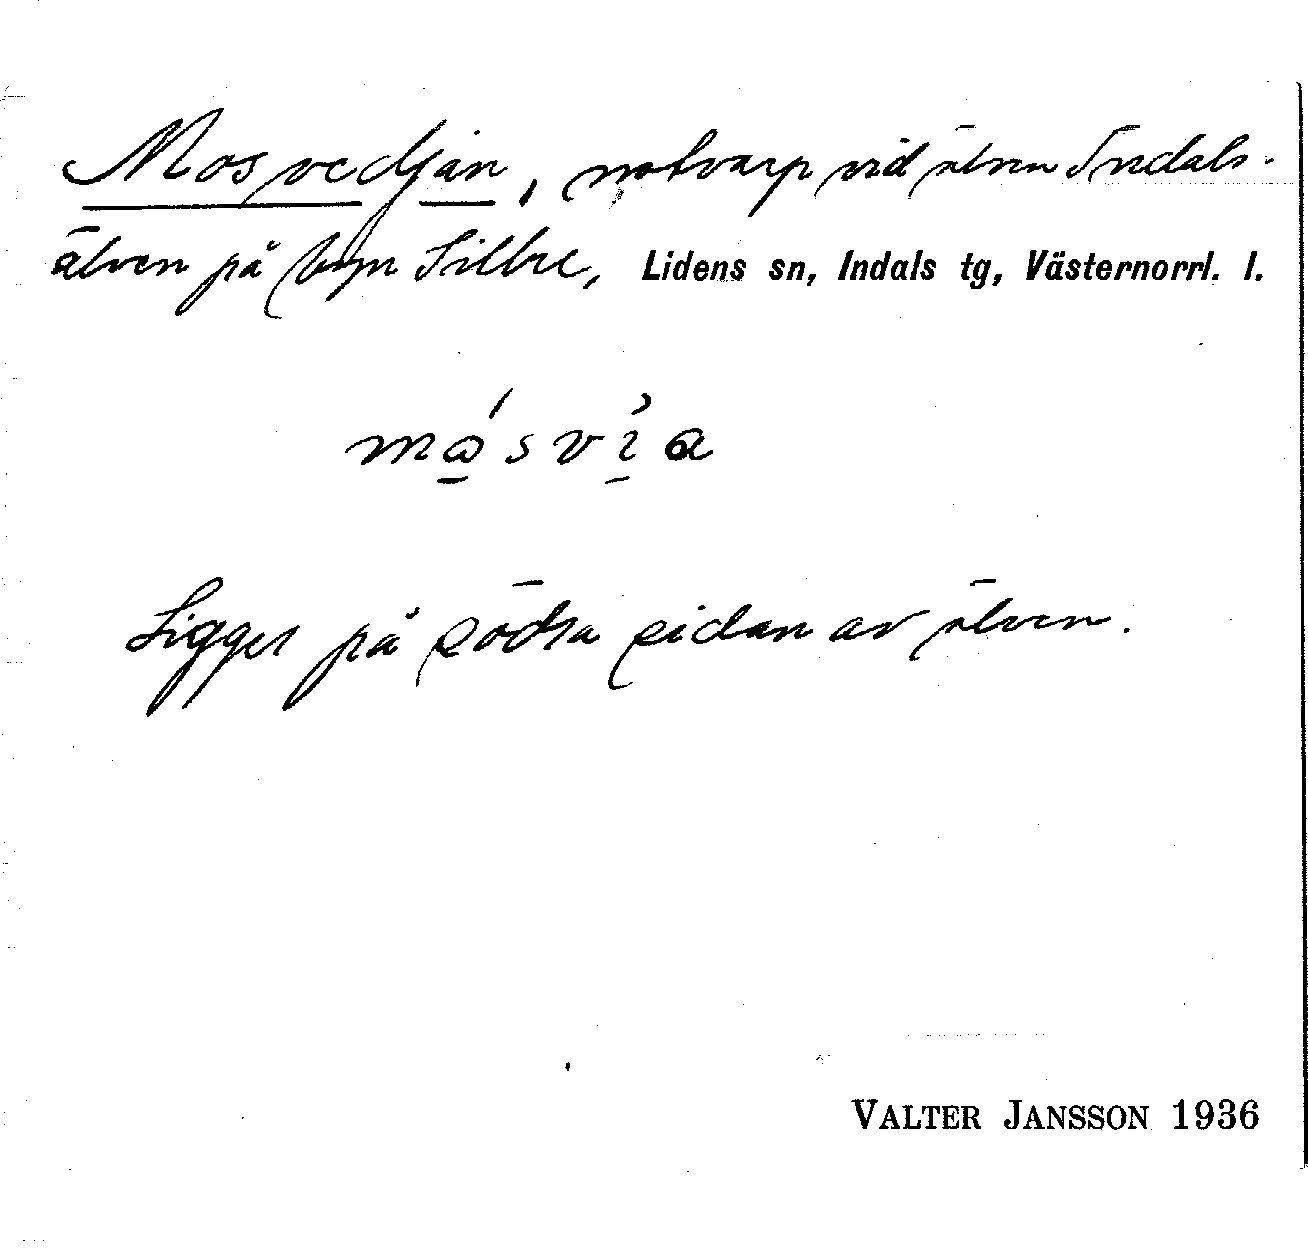 Mosvedjan, notvarp vid älven Indals-
älven på byn Sillre, Lidens sn, Indals tg, Västernorrl. l.
Ligger på södra sidan av älven.
VALTER JANSSON 1936